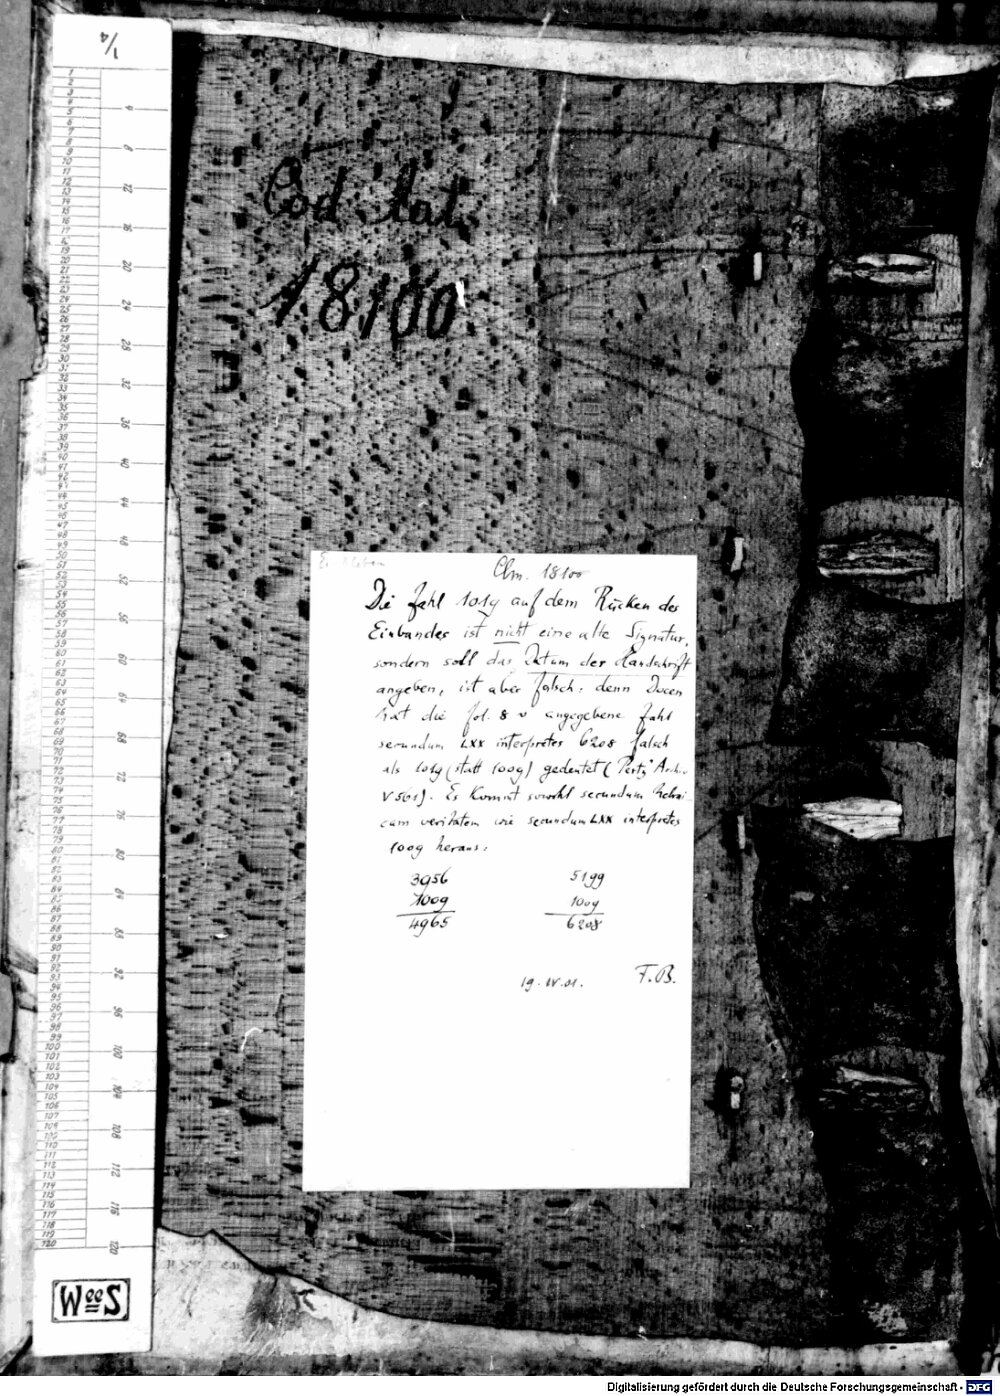 1/4
Cod. lat.
18100
Clm. 18100
Die Zahl 1019 auf dem Rücken des
Einbandes ist nicht eine alte Signatur,
sondern soll das Datum der Handschrift
angeben, ist aber falsch: denn Docen
hat die fol. 8 v angegebene Zahl
secundum LXX interpretes 6208 falsch
als 1019 (statt 1009) gedeutet (Pertz' Archiv
V 561). Es kommt sowohl secundum Hebrai-
cam veritatem wie secundum LXX interpretes
1009 heraus:
3956 5199
1009 1009
4965 6208
19. IV. 01. F. B.
WeeS
Digitalisierung gefördert durch die Deutsche Forschungsgemeinschaft - DFG